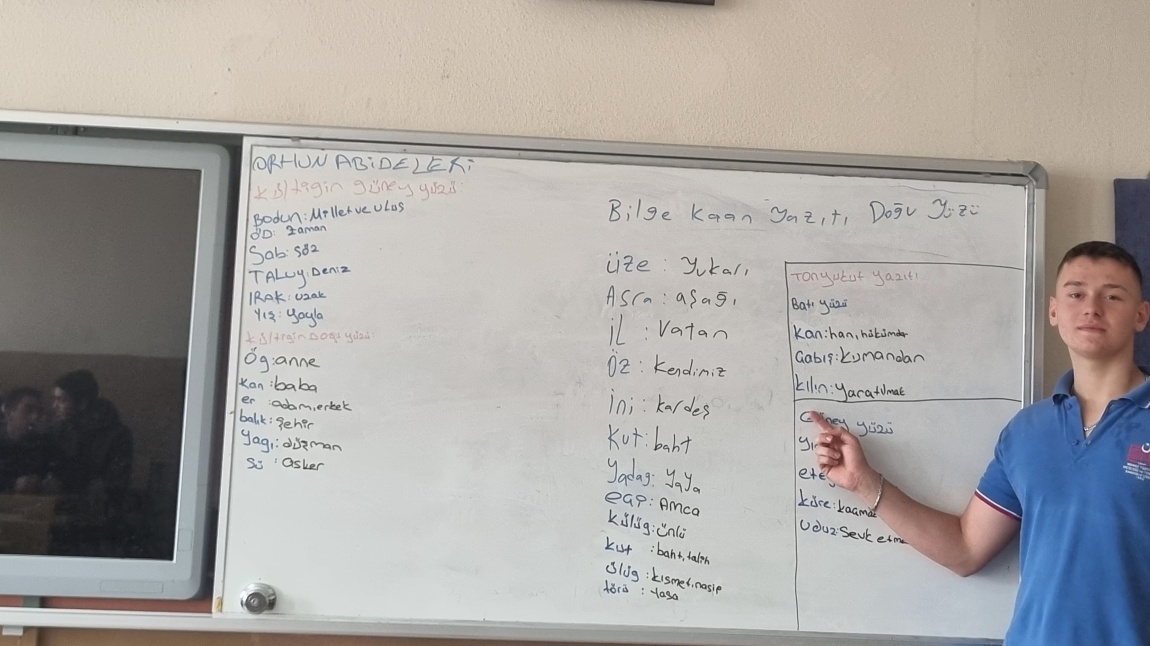 ORHUN ABİDELERİ
Kültegin güney yüzü:
Bodun: Millet ve ulus
ÖD: zaman
Sab: söz
TALUY: Deniz
IRAK: uzak
Yış: yayla
Kültegin Doğu yüzü:
Ög: anne
kan: baba
er: adam, erkek
balık: şehir
Yagı: düşman
Sü: asker
Bilge Kaan Yazıtı Doğu Yüzü
üze: Yukarı
Asra: aşağı
il: Vatan
Öz: Kendimiz
ini: kardeş
Kut: baht
Yadag: Yaya
eçi: AMCA
Külüg: ünlü
kut: baht, talih
ülüg: kısmet, nasip
törü: Yasa
Tonyukuk yazıtı
Batı yüzü
Kan: han, hükümdar
Gabış: kumandan
Kılın: yaratılmak
Güney yüzü
küre: kaçmak
Uduz: Sevk etme